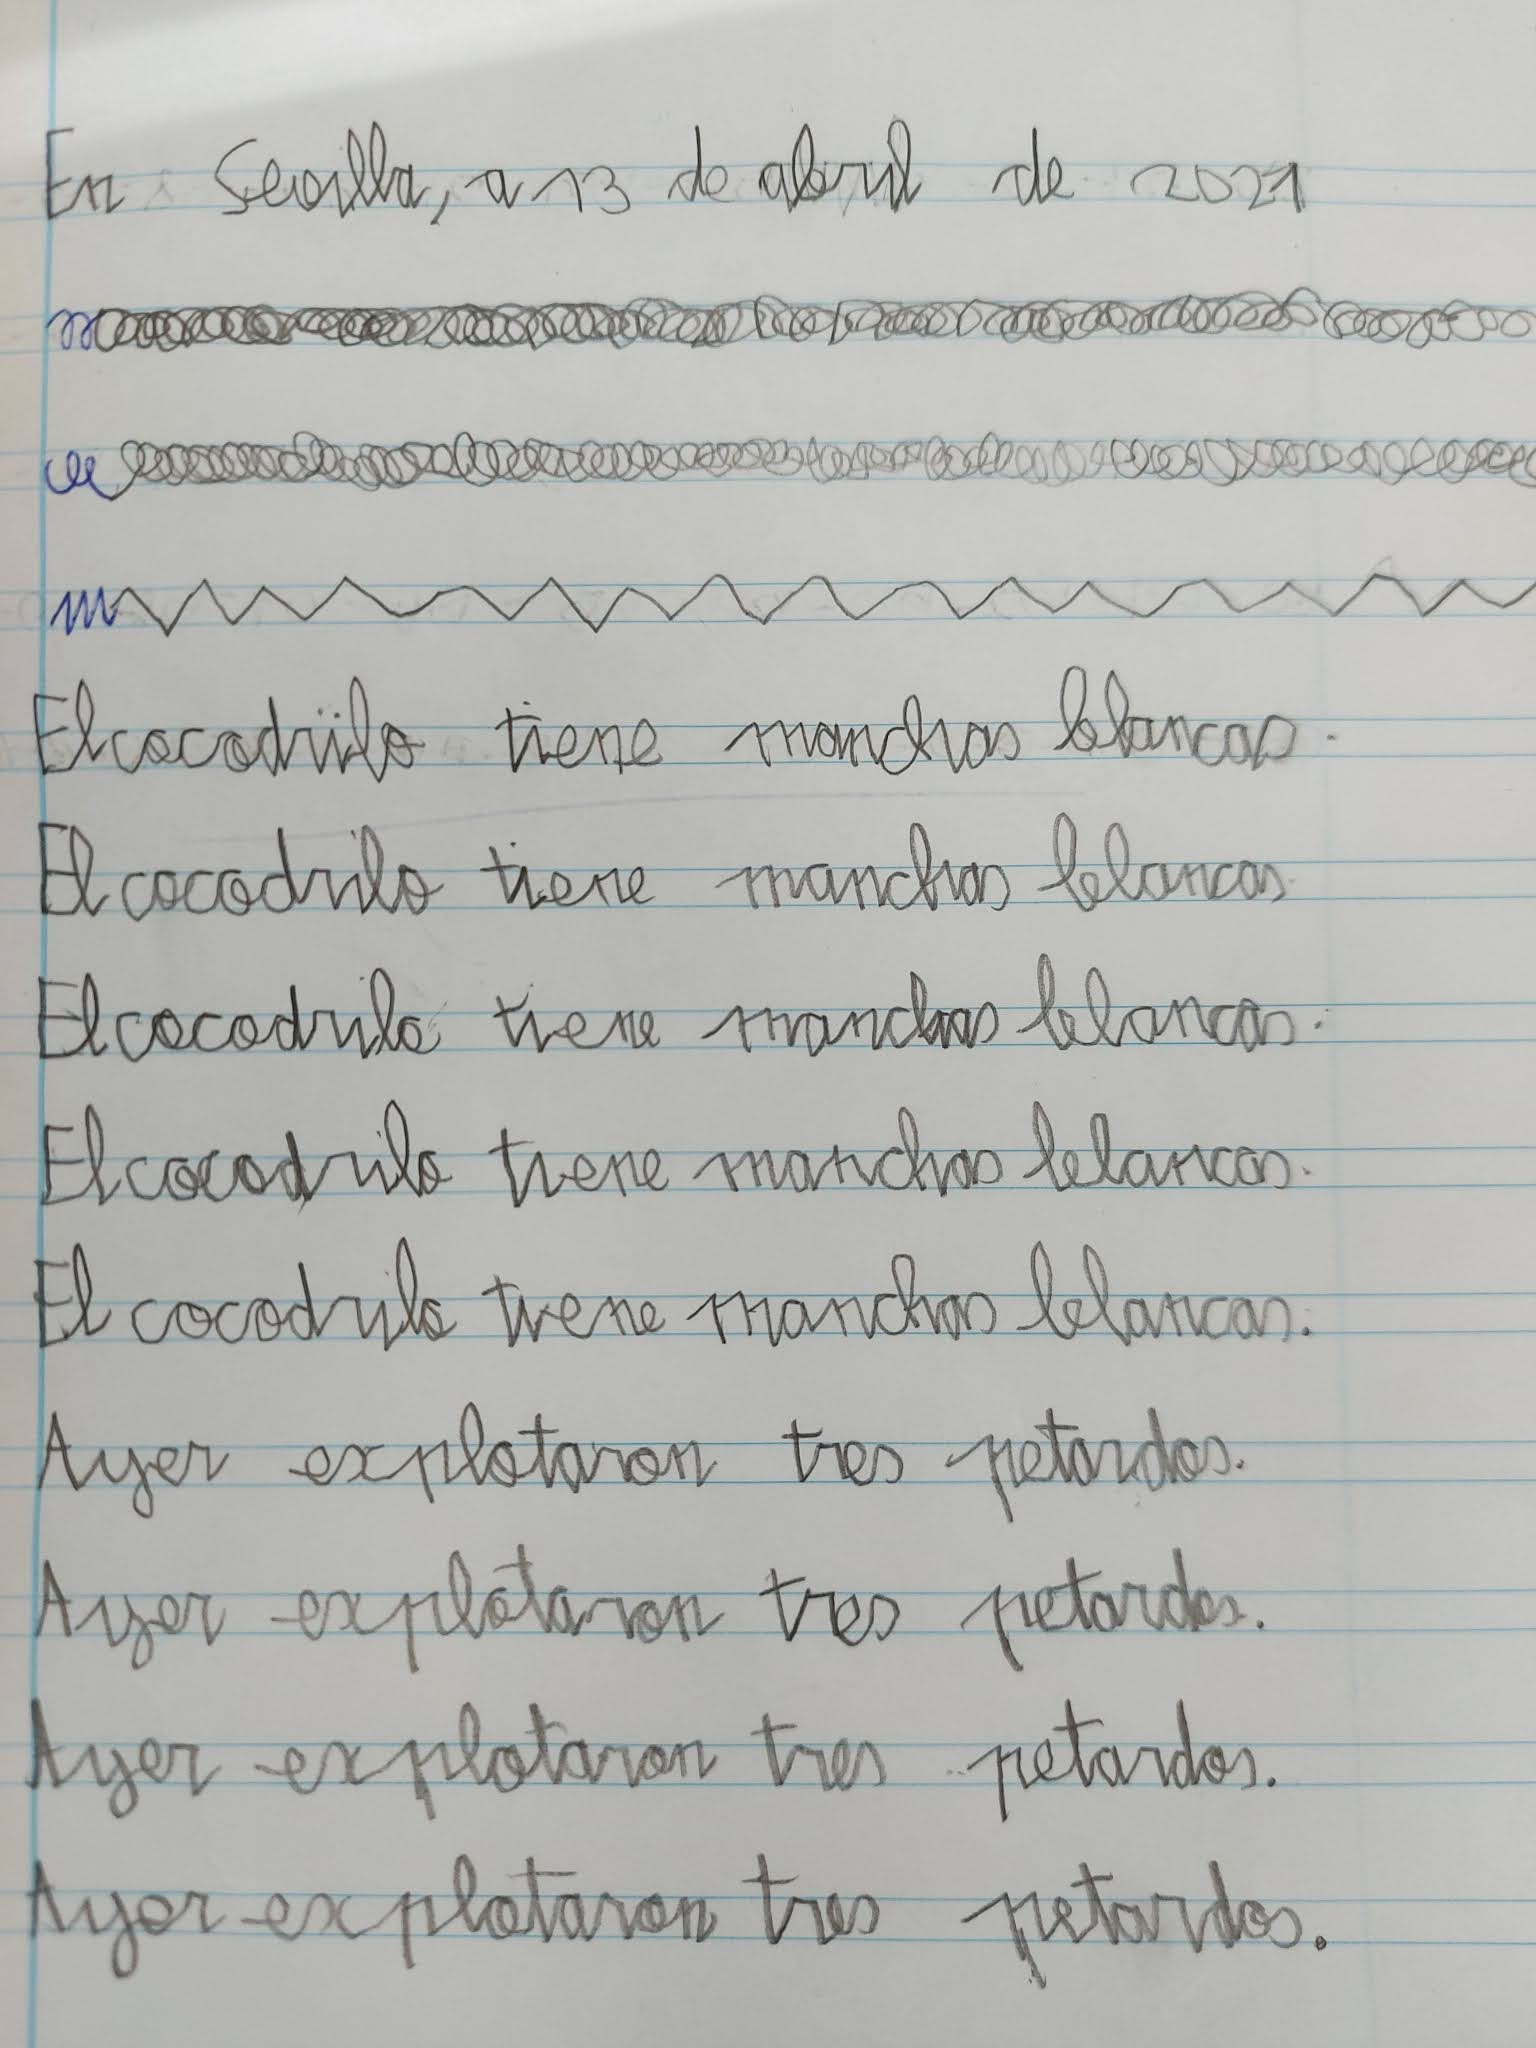 En Sevilla, a 13 de abril de 2021
El cocodrilo tiene manchas blancas.
El cocodrilo tiene manchas blancas.
El cocodrilo tiene manchas blancas.
El cocodrilo tiene manchas blancas.
El cocodrilo tiene manchas blancas.
Ayer explotaron tres petardos.
Ayer explotaron tres petardos.
Ayer explotaron tres petardos.
Ayer explotaron tres petardos.